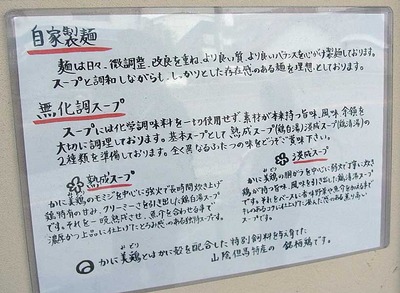 自家製麺
麺は日々、微調整、改良を重ね、より良い質、より良いバランスを心がけ製麺しております。
スープと調和しながらも、しっかりとした存在感のある麺を理想としております。
無化調スープ
スープには化学調味料を一切使用せず素材が本来持つ旨味、風味、余韻を
大切に調理しております。基本スープとして熟成スープ(鶏白湯)淡成スープ(鶏清湯)の
2種類を準備しております。全く異なるふたつの味をどうぞご賞味下さい。
熟成スープ
かに美鶏のモミジを中心に強火で長時間炊き上げ
鶏特有の甘み、クリーミーさを引き出した鶏白湯スープ
です。それを一晩熟成させ、魚介を合わせる事で
濃厚かつ上品に仕上げたとろみ感のある独特スープです。
淡成スープ
かに美鶏の胴ガラを中心に弱火で丁寧に炊き
鶏が持つ旨味、風味を引き出した鶏清湯スープ
です。それをベースに香味野菜や魚介を加える事で
スープです。
みどり
かに美鶏とはかに殻を配合した特別飼料を与え育てた
山陰但馬特産の銘柄鶏です。